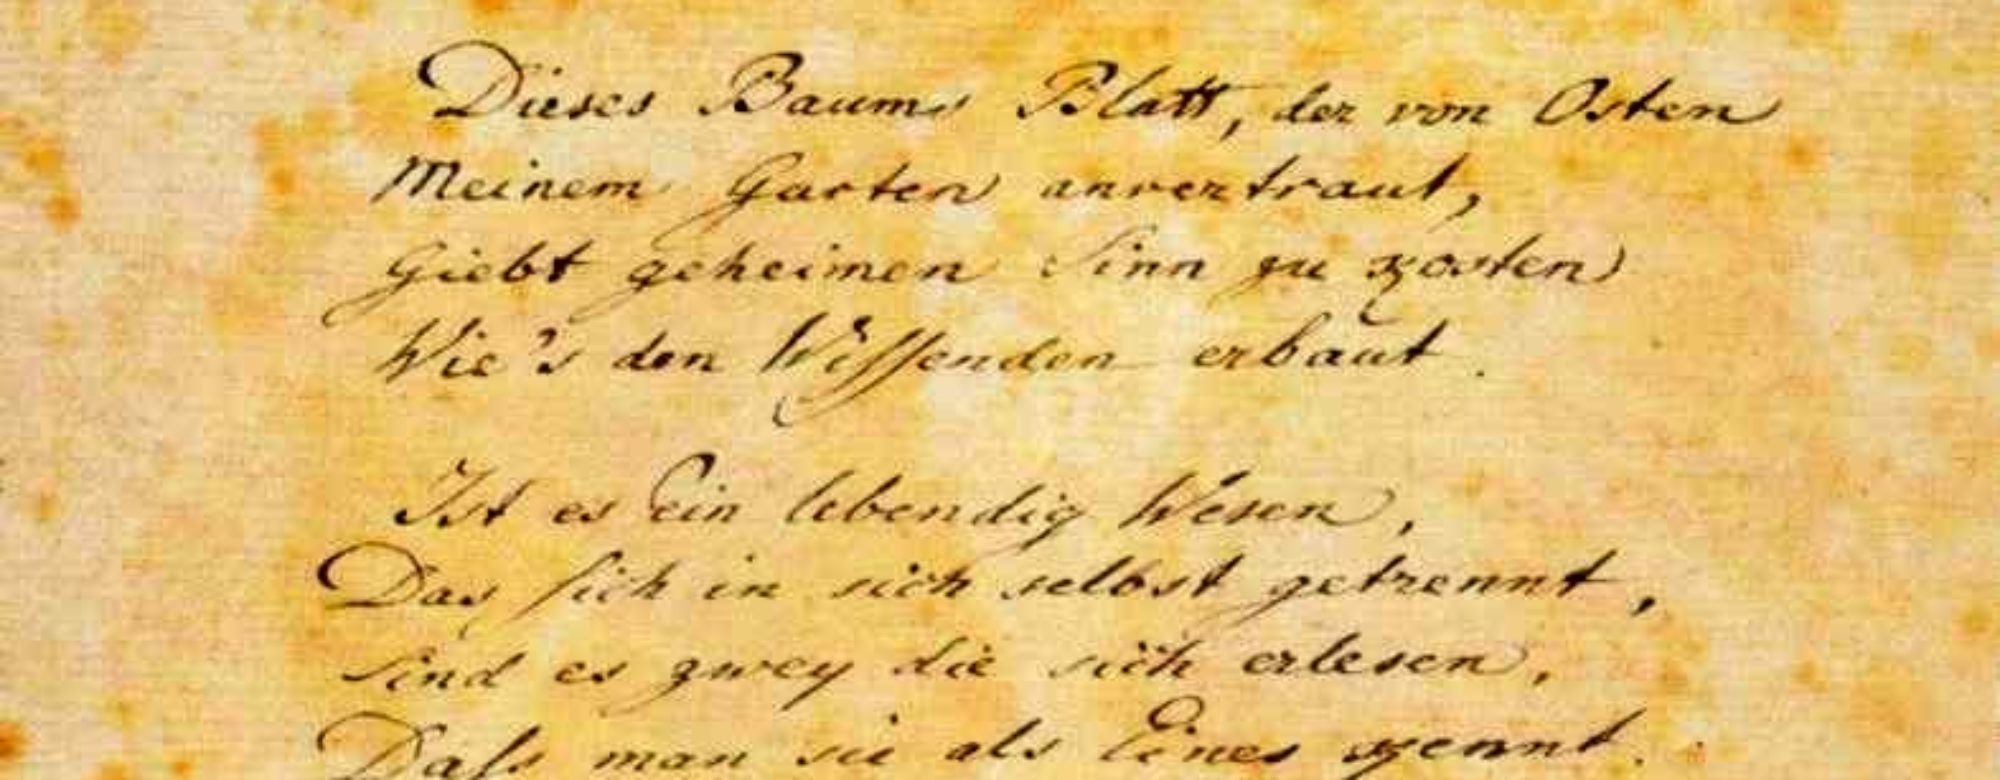 Dieses Baums Blatt, der von Osten
Meinem Garten anvertraut,
Giebt geheimen Sinn zu kosten
Wie's den Wissenden erbaut.
Ist es Ein lebendig Wesen,
Das sich in sich selbst getrennt,
Sind es zwey die sich erlesen,
Dass man sie als Eines kennt.